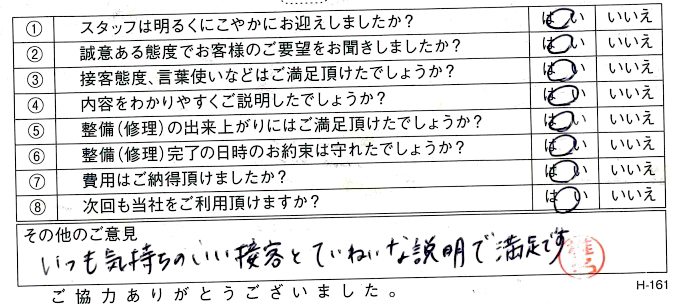 ① スタッフは明るくにこやかにお迎えしましたか? はい いいえ
② 誠意ある態度でお客様のご要望をお聞きしましたか? はい いいえ
③ 接客態度、言葉使いなどはご満足頂けたでしょうか? はい いいえ
④ 内容をわかりやすくご説明したでしょうか? はい いいえ
⑤ 整備(修理)の出来上がりにはご満足頂けたでしょうか? はい いいえ
⑥ 整備(修理)完了の日時のお約束は守れたでしょうか? はい いいえ
⑦ 費用はご納得頂けましたか? はい いいえ
⑧ 次回も当社をご利用頂けますか? はい いいえ
その他のご意見
いつも気持ちのいい接客とていねいな説明で満足です
H-161
ご協力ありがとうございました。